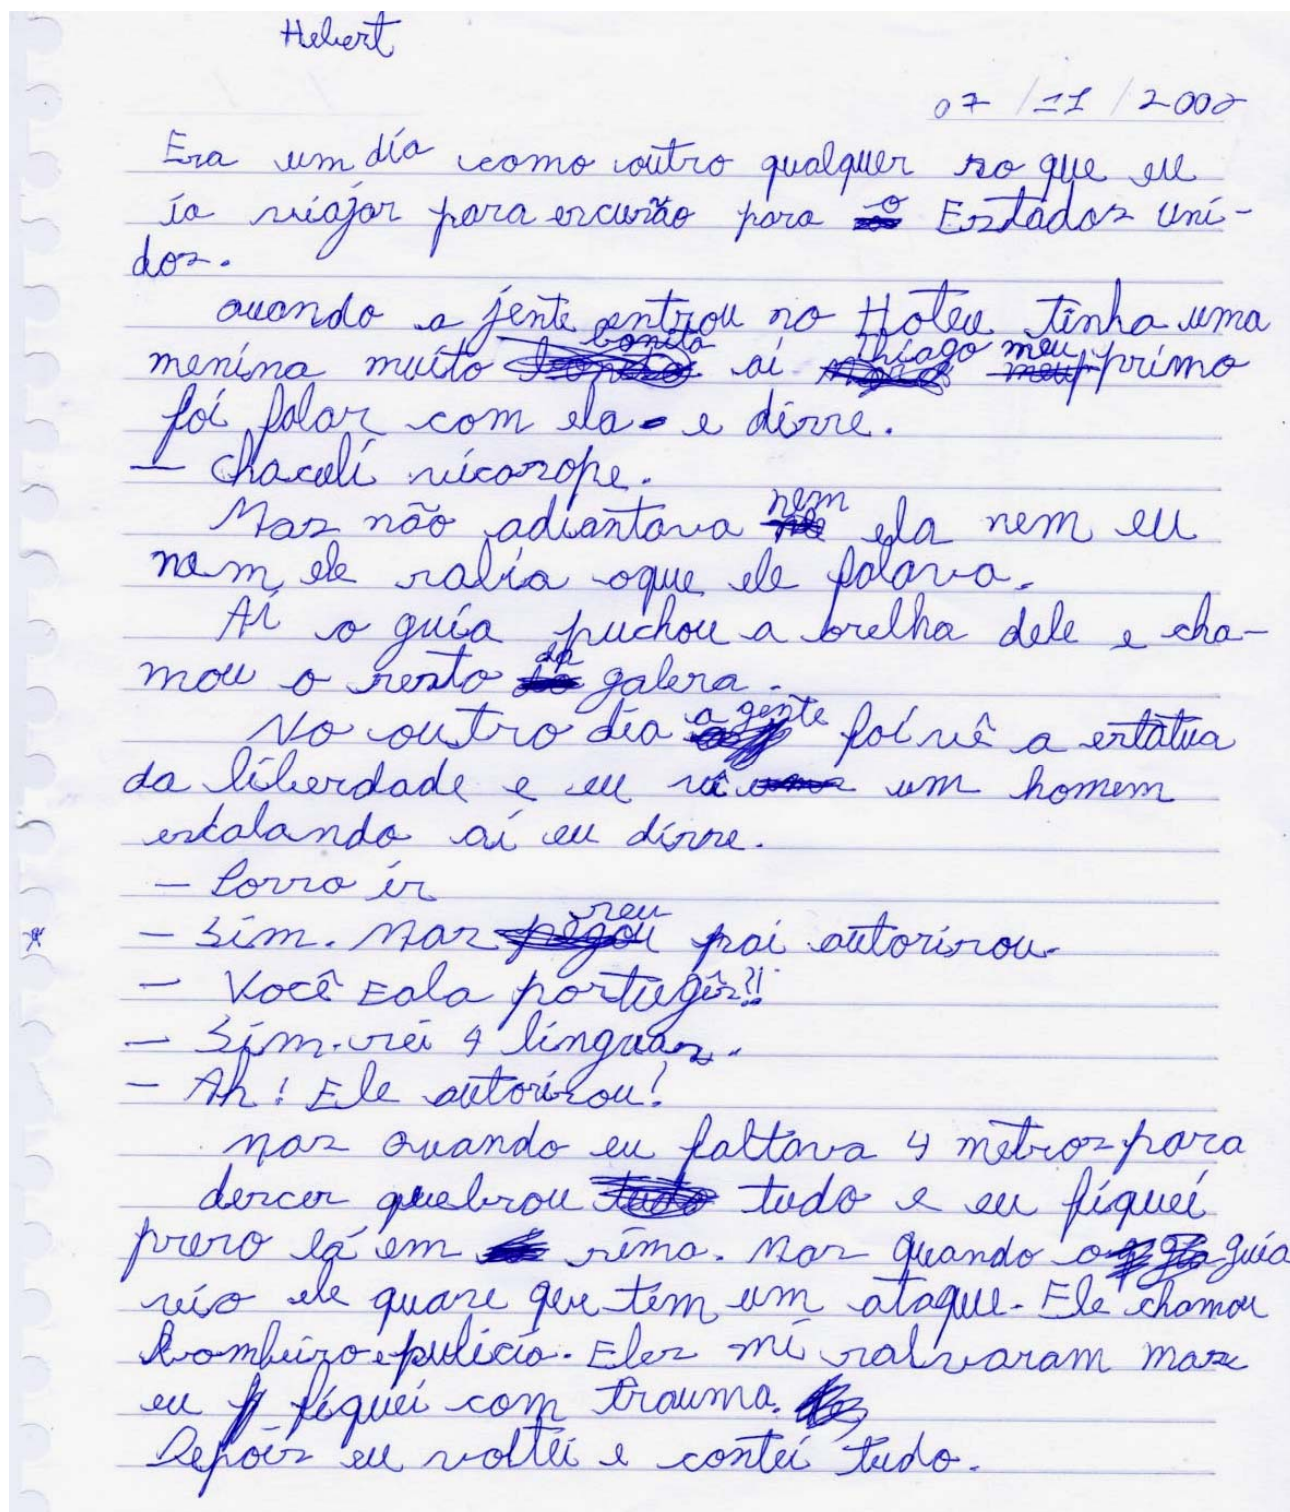 Hebert
07/11/2002
Era um día como outro qualquer so que eu
ía viajar para escursão para o Estados uni-
dos.
quando a jente entrou no Hoteu tinha uma
menina muíto bonita aí thiago meu primo
foí falar com ela e dísse.
— chacalí vícasope.
Mas não adiantava nem ela nem eu
nem ele sabía oque ele falava.
Aí o guía puchou a orelha dele e cha-
mou o resto da galera.
No outro día a gente foí vê a estátua
da líberdade e eu vi um homem
escalando aí eu dísse.
- Posso ír
- Sím. Mas seu pai autorisou.
- Você Fala portugês?!!
- Sím. sei 4 línguas.
- Ah! Ele autorisou!
mas quando eu faltava 4 metros para
descer quebrou tudo e eu fíqueí
preso lá em síma. Mas quando o guía
víso ele quase que tem um ataque. Ele chamou
bombeiro e pulícia. Eles mí salvaram mas
eu fíqueí com trauma.
Depoís eu volteí e conteí tudo.